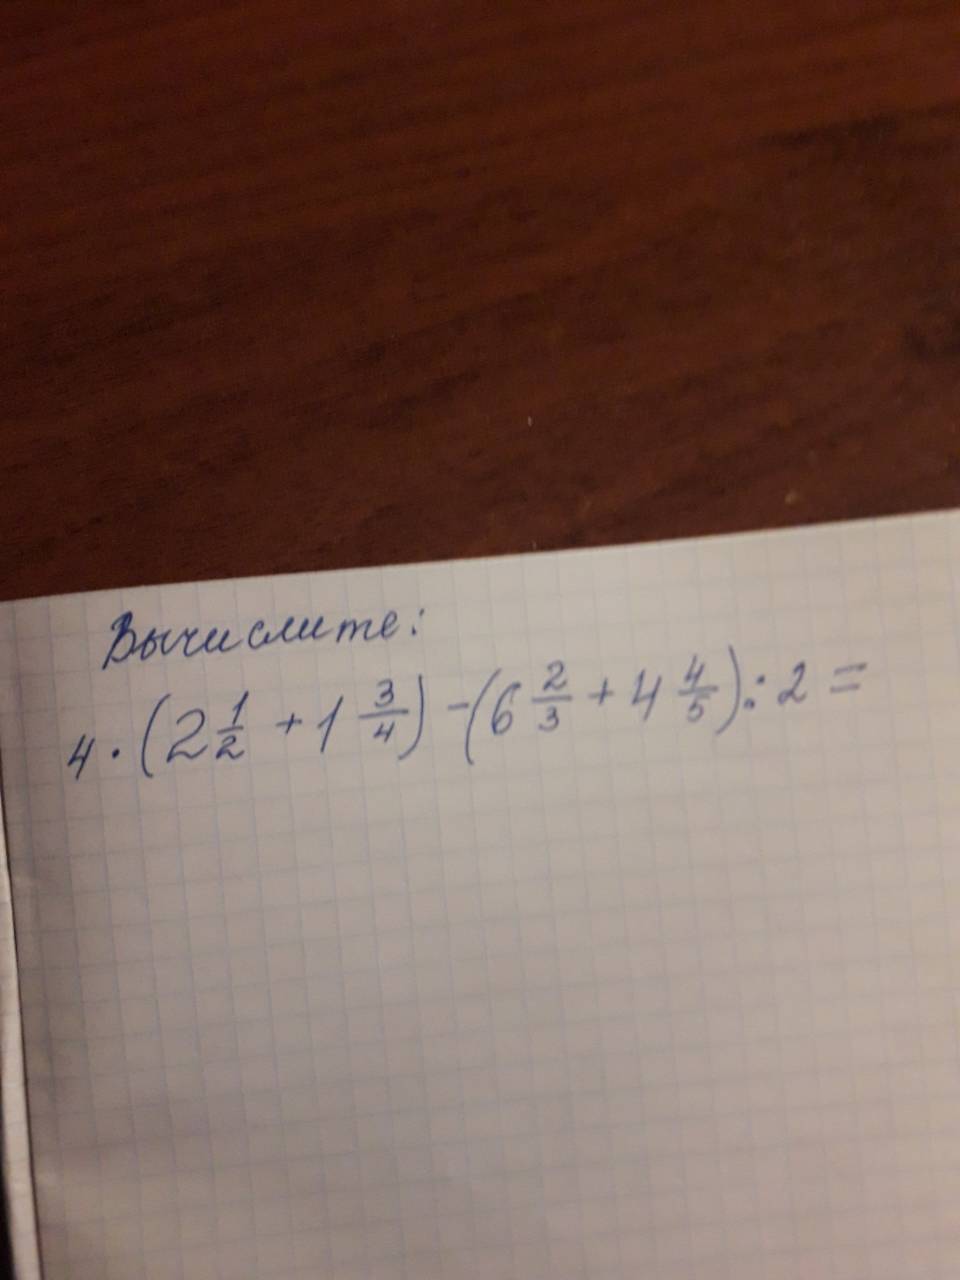 Вычислите:
4 · (2 1/2 + 1 3/4) - (6 2/3 + 4 4/5) : 2 =